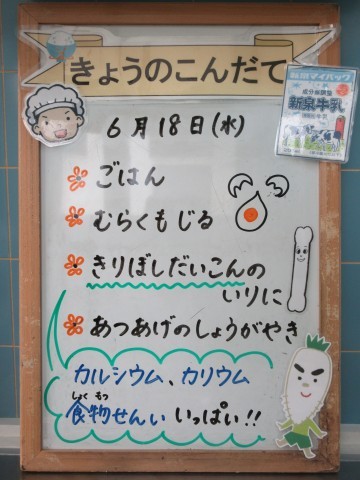 きょうのこんだて
新泉牛乳
6月18日(水)
ごはん
むらくもじる
きりぼしだいこんの
いりに
あつあげのしょうがやき
カルシウム、カリウム
しょく もつ
食物せんい いっぱい!!